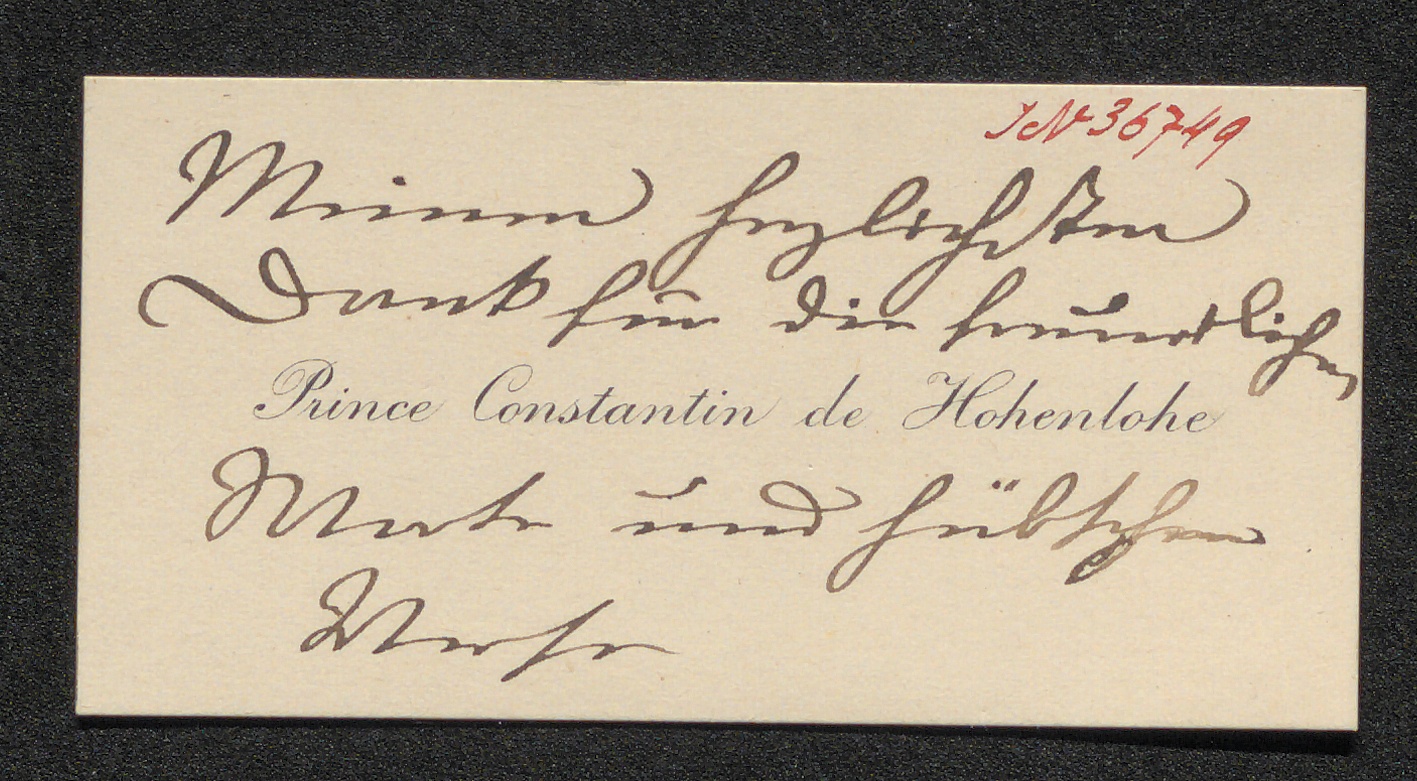 IN 36749
Meinen herzlichsten
Dank für die freundlichen
Prince Constantin de Hohenlohe
Worte und hübschen
Verse